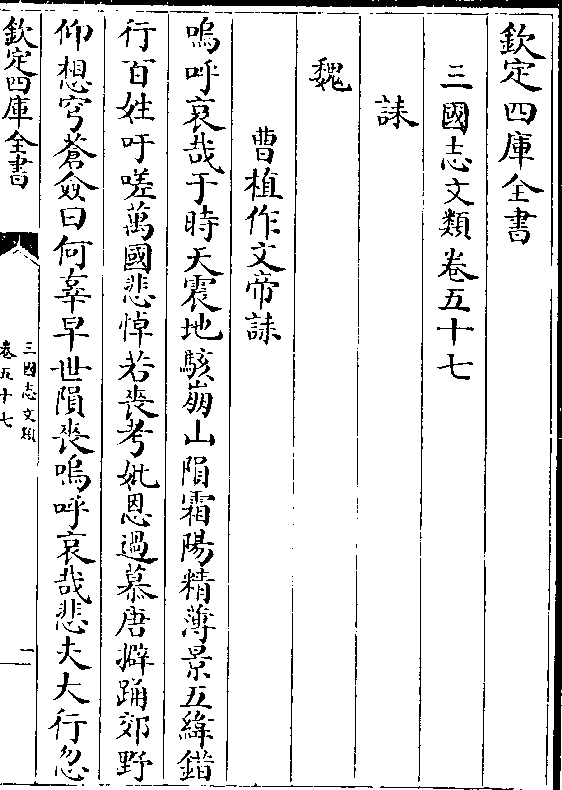 欽定四庫全書
三國志文類卷五十七
誄
魏
曹植作文帝誄
嗚呼哀哉于時天震地駭崩山隕霜陽精薄景五緯錯
行百姓吁嗟萬國悲悼若喪考妣恩過慕唐擗踊郊野
仰想穹蒼僉曰何辜早世隕喪嗚呼哀哉悲夫大行忽
欽定四庫全書
三國志文類
卷五十七
一